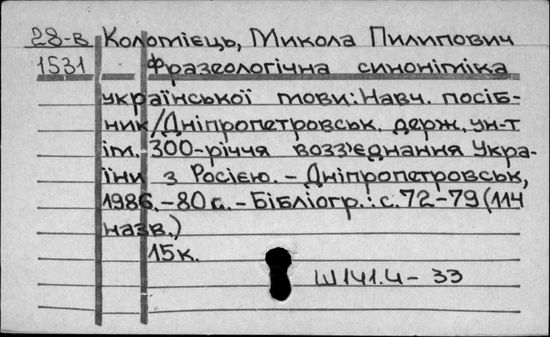 28-в Коломієць, Микола Пилипович
1531 Фразеологічна синоніміка
української мови: Навч. посіб-
ник/Дніпропетровськ. держ. ун-т
ім. 300-річчя возз'єднання Укра-
їни з Росією. - Дніпропетровськ,
1986. - 80 с. - Бібліогр.: с. 72-79 (114
назв.)
15к.
Ш141.4 - 33